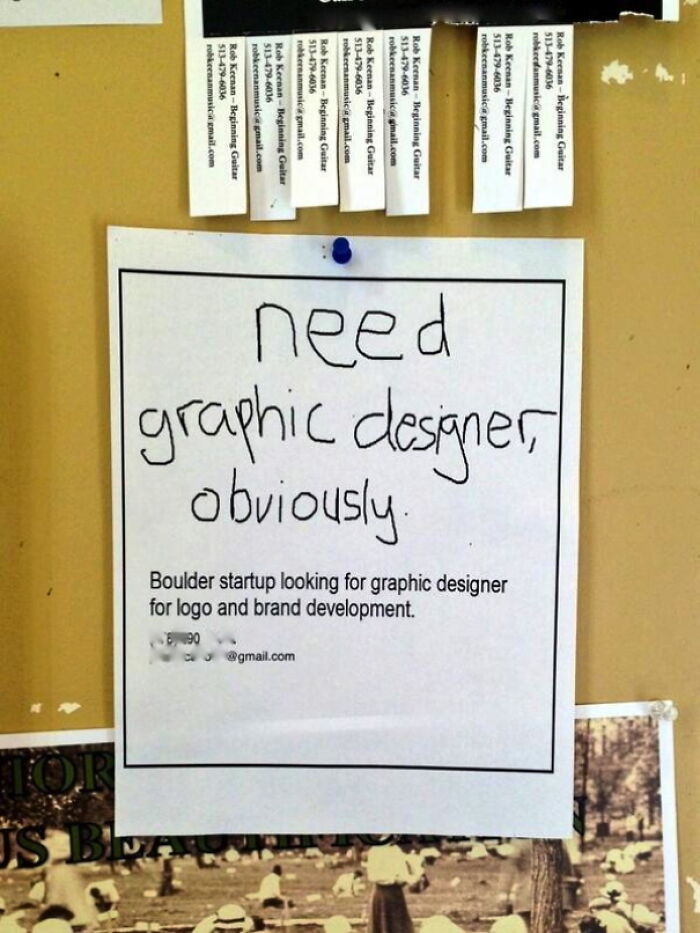 Rob Keenan – Beginning Guitar
513-479-6036
robkeenanmusic@gmail.com
Rob Keenan – Beginning Guitar
513-479-6036
robkeenanmusic@gmail.com
Rob Keenan – Beginning Guitar
513-479-6036
robkeenanmusic@gmail.com
Rob Keenan – Beginning Guitar
513-479-6036
robkeenanmusic@gmail.com
Rob Keenan – Beginning Guitar
513-479-6036
robkeenanmusic@gmail.com
Rob Keenan – Beginning Guitar
513-479-6036
robkeenanmusic@gmail.com
Rob Keenan – Beginning Guitar
513-479-6036
robkeenanmusic@gmail.com
need
graphic designer,
obviously.
Boulder startup looking for graphic designer
for logo and brand development.
@gmail.com
IOR